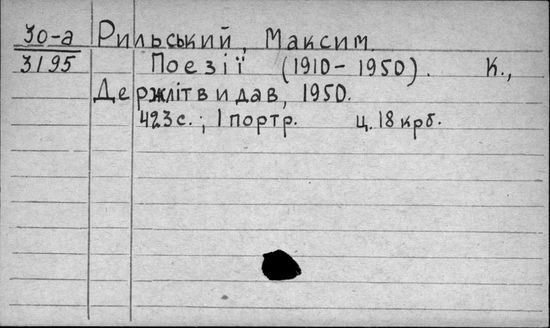 30-а Рильський, Максим.
3195 Поезії (1910-1950). К.,
Держлітвидав, 1950.
423 с.; 1 портр. ц. 18 крб.